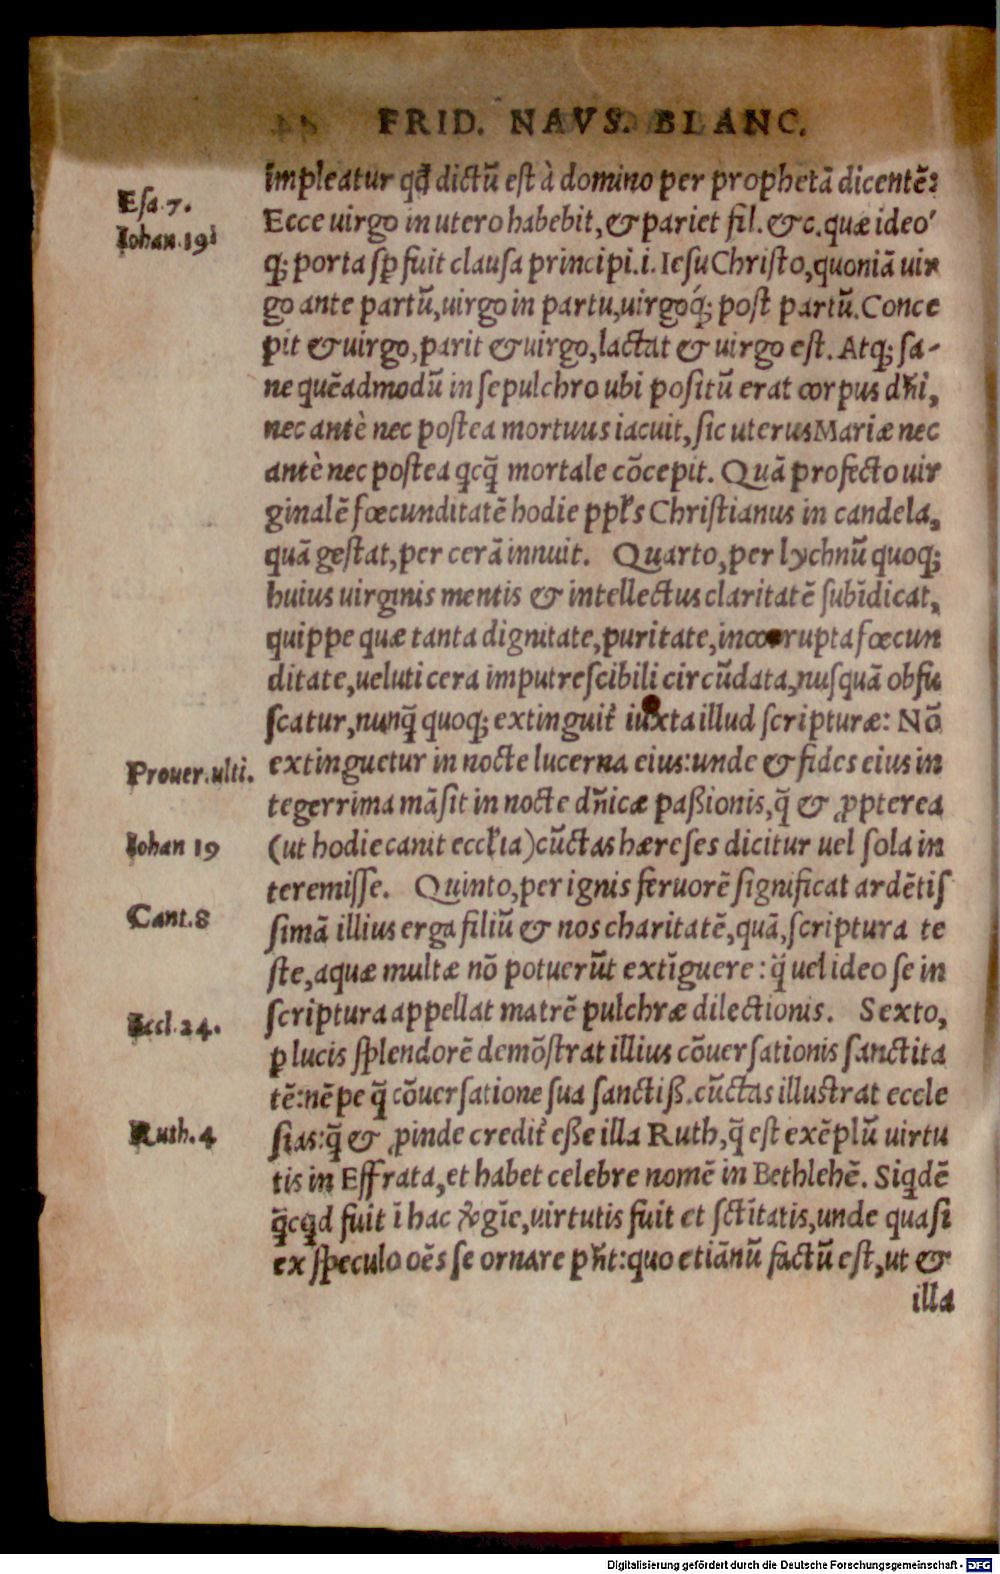 FRID. NAVS. BLANC.
impleatur qđ dictũ est à domino per prophetã dicentẽ:
Esa.7.
Ecce uirgo in utero habebit, & pariet fil. &c. quæ ideo´
Iohan.19
q; porta sp fuit clausa principi.i. Iesu Christo, quoniã uir
go ante partũ, uirgo in partu, uirgoq́; post partũ. Conce
pit & uirgo, parit & uirgo, lactat & uirgo est. Atq; sa-
ne quẽadmodũ in sepulchro ubi positũ erat corpus dñi,
nec antè nec postea mortuus iacuit, sic uterus Mariæ nec
antè nec postea qcq̃ mortale cõcepit. Quã profecto uir
ginalẽ fœcunditatẽ hodie ppl's Christianus in candela,
quã gestat, per cerã innuit. Quarto, per lychnũ quoq;
huius uirginis mentis & intellectus claritatẽ subĩdicat,
quippe quæ tanta dignitate, puritate, incorrupta fœcun
ditate, ueluti cera imputrescibili circũdata, nusquã obfu
scatur, nunq̃ quoq; extinguit' iuxta illud scripturæ: Nõ
Prouer.ulti.
extinguetur in nocte lucerna eius: unde & fides eius in
tegerrima mãsit in nocte dñicæ paßionis, q̃ & ꝓpterea
Iohan 19
(ut hodie canit eccl'ia) cũctas hæreses dicitur uel sola in
teremisse. Quinto, per ignis feruorẽ significat ardẽtis
Cant.8
simã illius erga filiũ & nos charitatẽ, quã, scriptura te
ste, aquæ multæ nõ potuerũt extĩguere: q̃ uel ideo se in
Eccl.24.
scriptura appellat matrẽ pulchræ dilectionis. Sexto,
ꝑ lucis splendorẽ demõstrat illius cõuersationis sanctita
tẽ: nẽpe q̃ cõuersatione sua sanctiß. cũctas illustrat eccle
Ruth.4
sias: q̃ & ꝓinde credit' eße illa Ruth, q̃ est exẽplũ uirtu
tis in Effrata, et habet celebre nomẽ in Bethlehẽ. Siqdẽ
q̃cqd fuit ĩ hac x̃gĩe, uirtutis fuit et sctĩtatis, unde quasi
ex speculo oẽs se ornare pñt: quo etiã nũ factũ est, ut &
illa
Digitalisierung gefördert durch die Deutsche Forschungsgemeinschaft - DFG